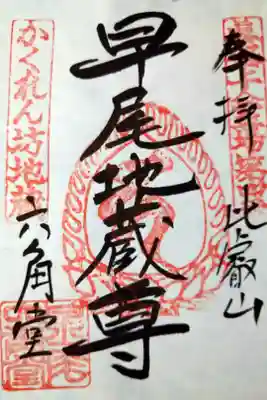 奉拝
比叡山
早尾地蔵尊
六角堂
かくれん坊地蔵